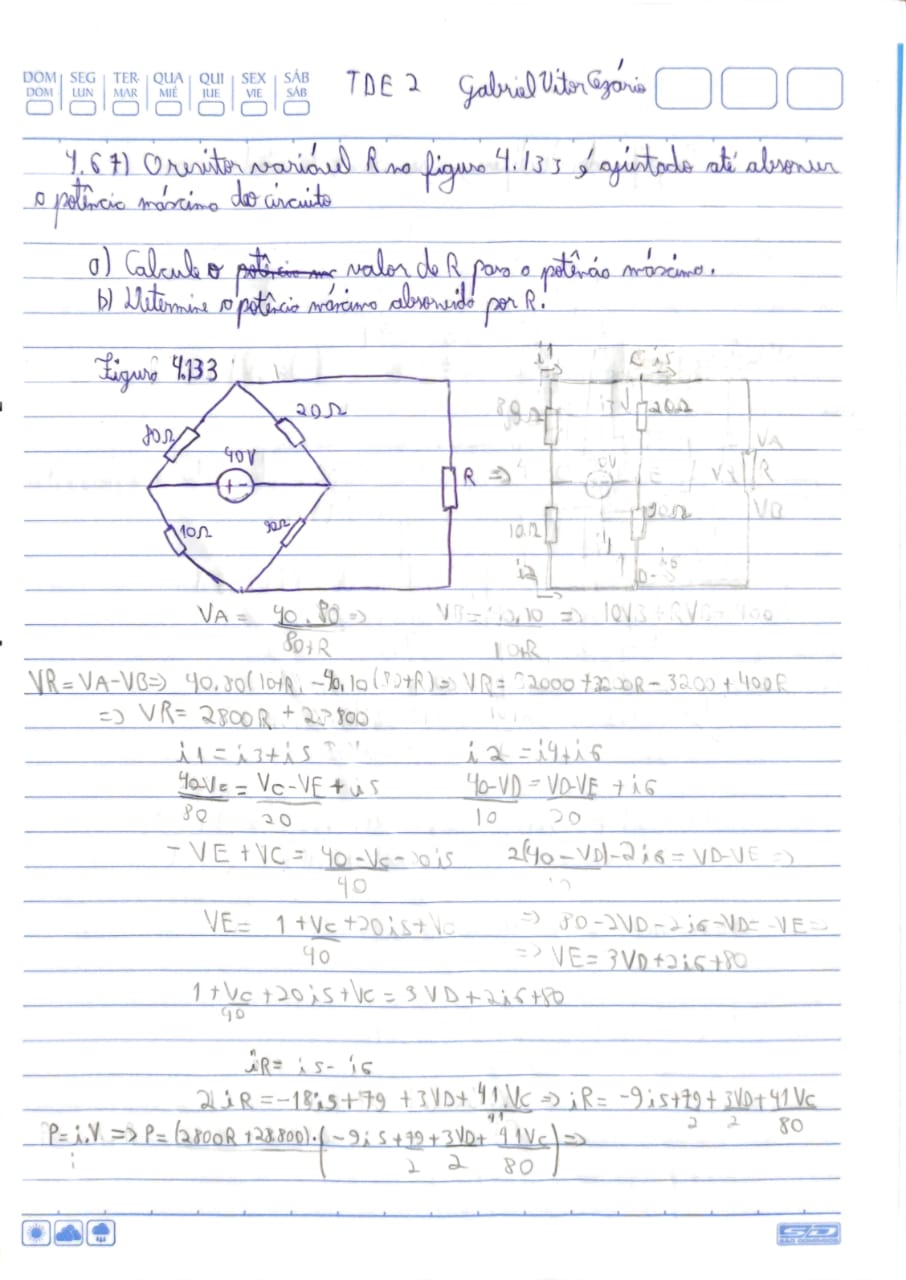 DOM SEG TER- QUA QUI SEX SÁB
DOM LUN MAR MIÉ JUE VIE SÁB
TDE 2 Gabriel Vitor Cezário
4.67) O resistor variável R na figura 4.133 é ajustado até absorver
a potência máxima do circuito
a) Calcule o valor de R para a potência máxima.
b) Determine a potência máxima absorvida por R.
Figura 4.133
80Ω 20Ω
40V
+ -
10Ω 90Ω
R =>
i1 C i5
i3 20Ω
VA
VR R
VB
10Ω
i2 i4
VA = 40.80 =>
80+R
VB = 10 => 10VB + RVB = 400
10+R
VR = VA-VB => 40.80(10+R) - 40.10(80+R) => VR = 32000 + 3200R - 3200 + 400R
=> VR = 2800R + 28800
i1 = i3+i5 i2 = i4+i6
40-Vc = Vc-VE + i5 40-VD = VD-VE + i6
80 20 10 20
-VE + VC = 40-Vc - 20i5 2(40-VD)-2i6 = VD-VE =>
40
VE = 1+Vc+20i5+Vc => 80-2VD-2i6-VD = -VE =>
40 => VE = 3VD+2i6+80
1+Vc+20i5+Vc = 3VD+2i6+80
40
iR = i5- i6
2iR = -18i5+79 +3VD+ 41Vc => iR = -9i5+79+3VD+41Vc
2 2 80
P=i.V => P=(2800R+28.800).(-9i5+79+3VD+41Vc) =>
2 2 80
SD
SÃO DOMINGOS